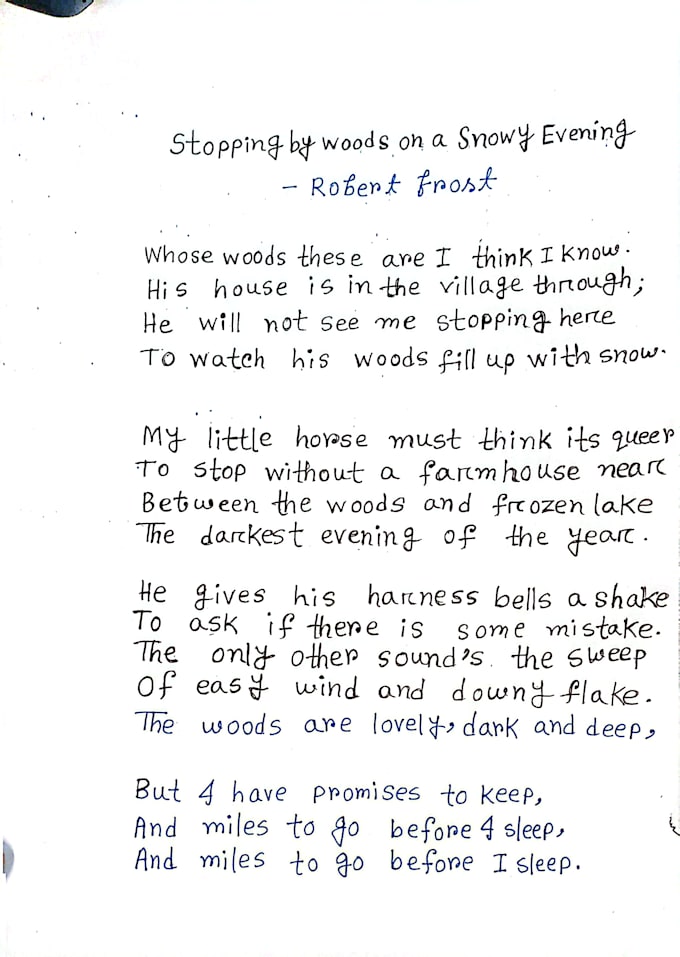 Stopping by woods on a Snowy Evening
- Robert frost
Whose woods these are I think I know.
His house is in the village through;
He will not see me stopping here
To watch his woods fill up with snow.
My little horse must think its queer
To stop without a farmhouse near
Between the woods and frozen lake
The darkest evening of the year.
He gives his harness bells a shake
To ask if there is some mistake.
The only other sound's the sweep
Of easy wind and downy flake.
The woods are lovely, dark and deep,
But I have promises to keep,
And miles to go before I sleep,
And miles to go before I sleep.